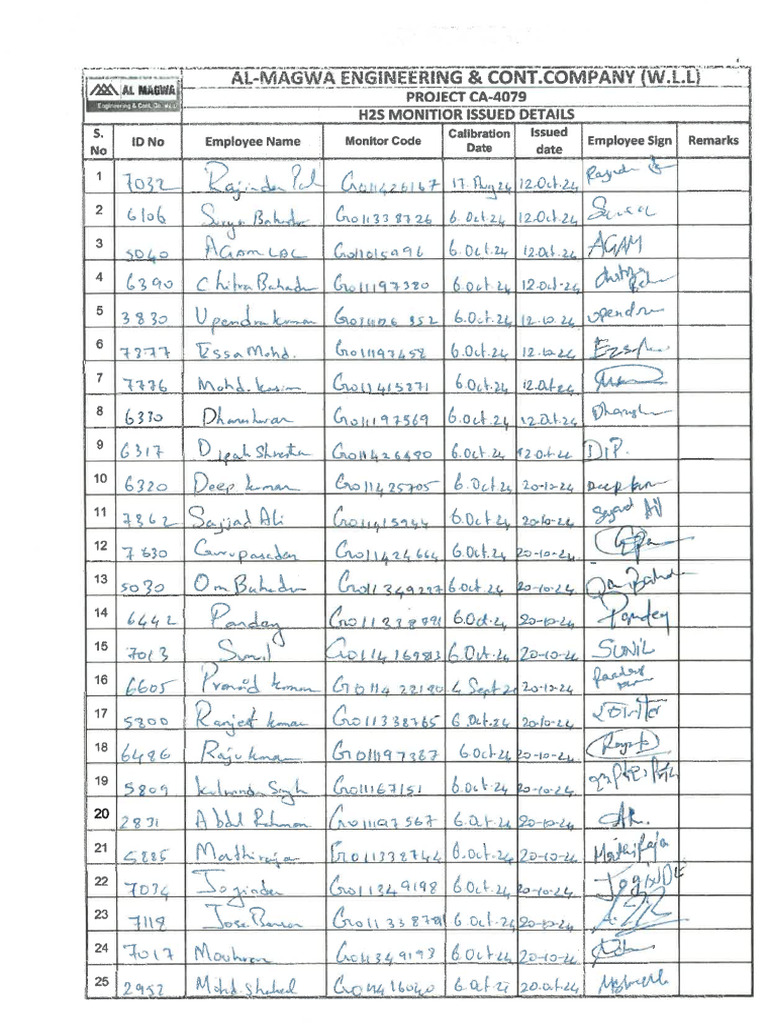 AL-MAGWA ENGINEERING & CONT.COMPANY (W.L.L)
AL MAGWA
Engineering & Cont. Co. W.L.L
PROJECT CA-4079
H2S MONITIOR ISSUED DETAILS
S. No ID No Employee Name Monitor Code Calibration Date Issued date Employee Sign Remarks
1 7032 Rajinder Pal G011426167 17.Aug24 12.Oct.24
2 6106 Surya Bahadur G011338726 6.Oct.24 12.Oct.24
3 5040 AGAM LAL G011015996 6.Oct.24 12.Oct.24 AGAM
4 6390 Chitra Bahadur G011197380 6.Oct.24 12.Oct-24
5 3830 Upendra kumar 6.Oct.24 12.10.24 upendra
6 7377 Essa Mohd. G011197458 6.Oct.24 12.10.24
7 7776 Mohd. kasim G011415371 6.Oct.24 12.Oct.24
8 6330 Dhaneshwar G011197569 6.Oct.24 12.Oct.24
9 6317 Dipah Shrestha G011426490 6.Oct.24 12.Oct.24 DIP.
10 6320 Deep kumar G011425705 6.Oct.24 20-10-24
11 7362 Sajjad Ali G011415944 6.Oct.24 20-10-24 Sajjad Ali
12 7630 Gurupasadan G011424664 6.Oct.24 20-10-24
13 5030 Om Bahadur G011349297 6.Oct.24 20-10-24 Om Bahadur
14 6442 Panday G011338791 6.Oct.24 20-10-24 Pandey
15 7013 Sunil 6.Oct.24 20-10-24 SUNIL
16 6605 Pramod kumar G011422190 4 Sept 20-10-24
17 5300 Ranjeet kumar G011338765 6.Oct.24 20-10-24
18 6486 Raju kumar G011197387 6.Oct-24 20-10-24
19 5809 Kulwinder Singh G011167151 6.Oct-24 20-10-24
20 2831 Abdul Rahman G011197567 6.Oct.24 20-10-24
21 5885 Madhirajan G011338744 6.Oct.24 20-10-24
22 7034 Joginder G011349198 6.Oct.24 20-10-24
23 7118 G011338781 6.Oct.24 20-10-24
24 7017 G011349193 6.Oct.24 20-10-24
25 2952 Mohd. Shakeel G011416040 6.Oct.24 20.Oct.24